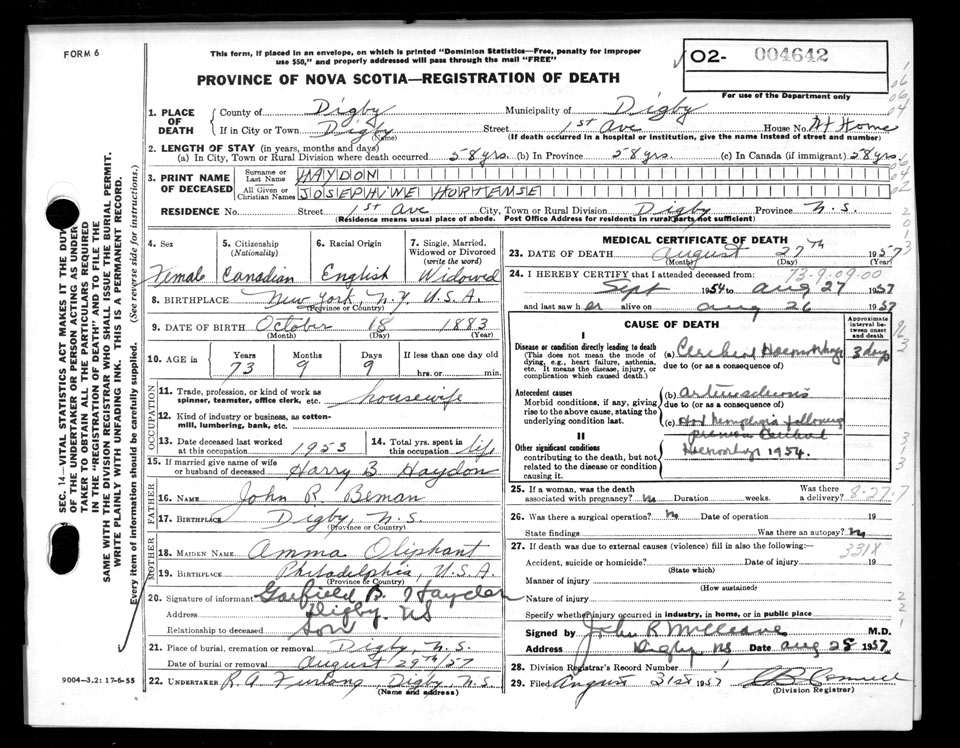 FORM 6
This form, if placed in an envelope, on which is printed "Dominion Statistics—Free, penalty for improper
use $50," and properly addressed will pass through the mail "FREE"
O2- 004642
PROVINCE OF NOVA SCOTIA—REGISTRATION OF DEATH
For use of the Department only
1. PLACE OF DEATH
County of Digby Municipality of Digby
If in City or Town Digby Street 1st Ave House No. At Home
(Name) (If death occurred in a hospital or institution, give the name instead of street and number)
2. LENGTH OF STAY (in years, months and days)
(a) In City, Town or Rural Division where death occurred 58 yrs. (b) In Province 58 yrs. (c) In Canada (if immigrant) 58 yrs.
3. PRINT NAME OF DECEASED
Surname or Last Name HAYDON
All Given or Christian Names JOSEPHINE HORTENSE
RESIDENCE No. Street 1st Ave City, Town or Rural Division Digby Province N.S.
(Residence means usual place of abode. Post Office Address for residents in rural parts not sufficient)
4. Sex Female
5. Citizenship (Nationality) Canadian
6. Racial Origin English
7. Single, Married, Widowed or Divorced (write the word) Widowed
8. BIRTHPLACE New York, N.Y. U.S.A.
(Province or Country)
9. DATE OF BIRTH October 18 1883
(Month) (Day) (Year)
10. AGE in Years Months Days If less than one day old
73 9 9 hrs. or min.
OCCUPATION
11. Trade, profession, or kind of work as spinner, teamster, office clerk, etc. housewife
12. Kind of industry or business, as cotton-mill, lumbering, bank, etc.
13. Date deceased last worked at this occupation 1953
14. Total yrs. spent in this occupation life
15. If married give name of wife or husband of deceased Harry B. Haydon
FATHER
16. NAME John R. Beman
17. BIRTHPLACE Digby, N.S.
(Province or Country)
MOTHER
18. MAIDEN NAME Amma Oliphant
19. BIRTHPLACE Philadelphia, U.S.A.
(Province or Country)
20. Signature of informant Garfield B. Hayden
Address Digby NS
Relationship to deceased Son
21. Place of burial, cremation or removal Digby, N.S.
Date of burial or removal August 29th/57
22. UNDERTAKER R.A. Furlong, Digby, N.S.
(Name and address)
MEDICAL CERTIFICATE OF DEATH
23. DATE OF DEATH August 27th 1957
(Month) (Day) (Year)
73-9-09-00
24. I HEREBY CERTIFY that I attended deceased from:
Sept 1954 to Aug 27 1957
and last saw her alive on Aug 26 1957
CAUSE OF DEATH
Approximate interval between onset and death
I
Disease or condition directly leading to death
(This does not mean the mode of dying, e.g., heart failure, asthenia, etc. It means the disease, injury, or complication which caused death.)
(a) Cerebral Haemorrhage 3 days
due to (or as a consequence of)
Antecedent causes
Morbid conditions, if any, giving rise to the above cause, stating the underlying condition last.
(b)
due to (or as a consequence of)
(c) Hemiplegia following
previous Cerebral
Haemorrhage 1954.
II
Other significant conditions
contributing to the death, but not related to the disease or condition causing it.
25. If a woman, was the death associated with pregnancy? No Duration weeks. Was there a delivery?
8-27-7
26. Was there a surgical operation? No Date of operation 19
State findings Was there an autopsy? No
27. If death was due to external causes (violence) fill in also the following:—
331X
Accident, suicide or homicide? Date of injury 19
(State which)
Manner of injury
(How sustained)
Nature of injury
Specify whether injury occurred in industry, in home, or in public place
Signed by John R McCleave M.D.
Address Digby, NS Date Aug 28 1957
28. Division Registrar's Record Number 1
29. Filed August 31st 1957
(Division Registrar)
SEC. 14—VITAL STATISTICS ACT MAKES IT THE DUTY
OF THE UNDERTAKER OR PERSON ACTING AS UNDER-
TAKER TO OBTAIN ALL THE PARTICULARS REQUIRED
IN THE "REGISTRATION OF DEATH" AND TO FILE THE
SAME WITH THE DIVISION REGISTRAR WHO SHALL ISSUE THE BURIAL PERMIT.
WRITE PLAINLY WITH UNFADING INK. THIS IS A PERMANENT RECORD.
Every item of information should be carefully supplied. (See reverse side for instructions.)
9004—3.2: 17-6-55